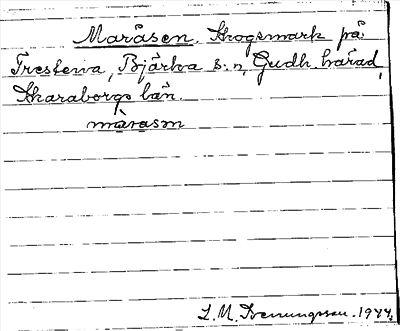 Maråsen. Skogsmark på
Trestena, Bjärka s:n, Gudh. härad,
Skaraborgs län.
màrasm
L. M. Svenungsson. 1944.